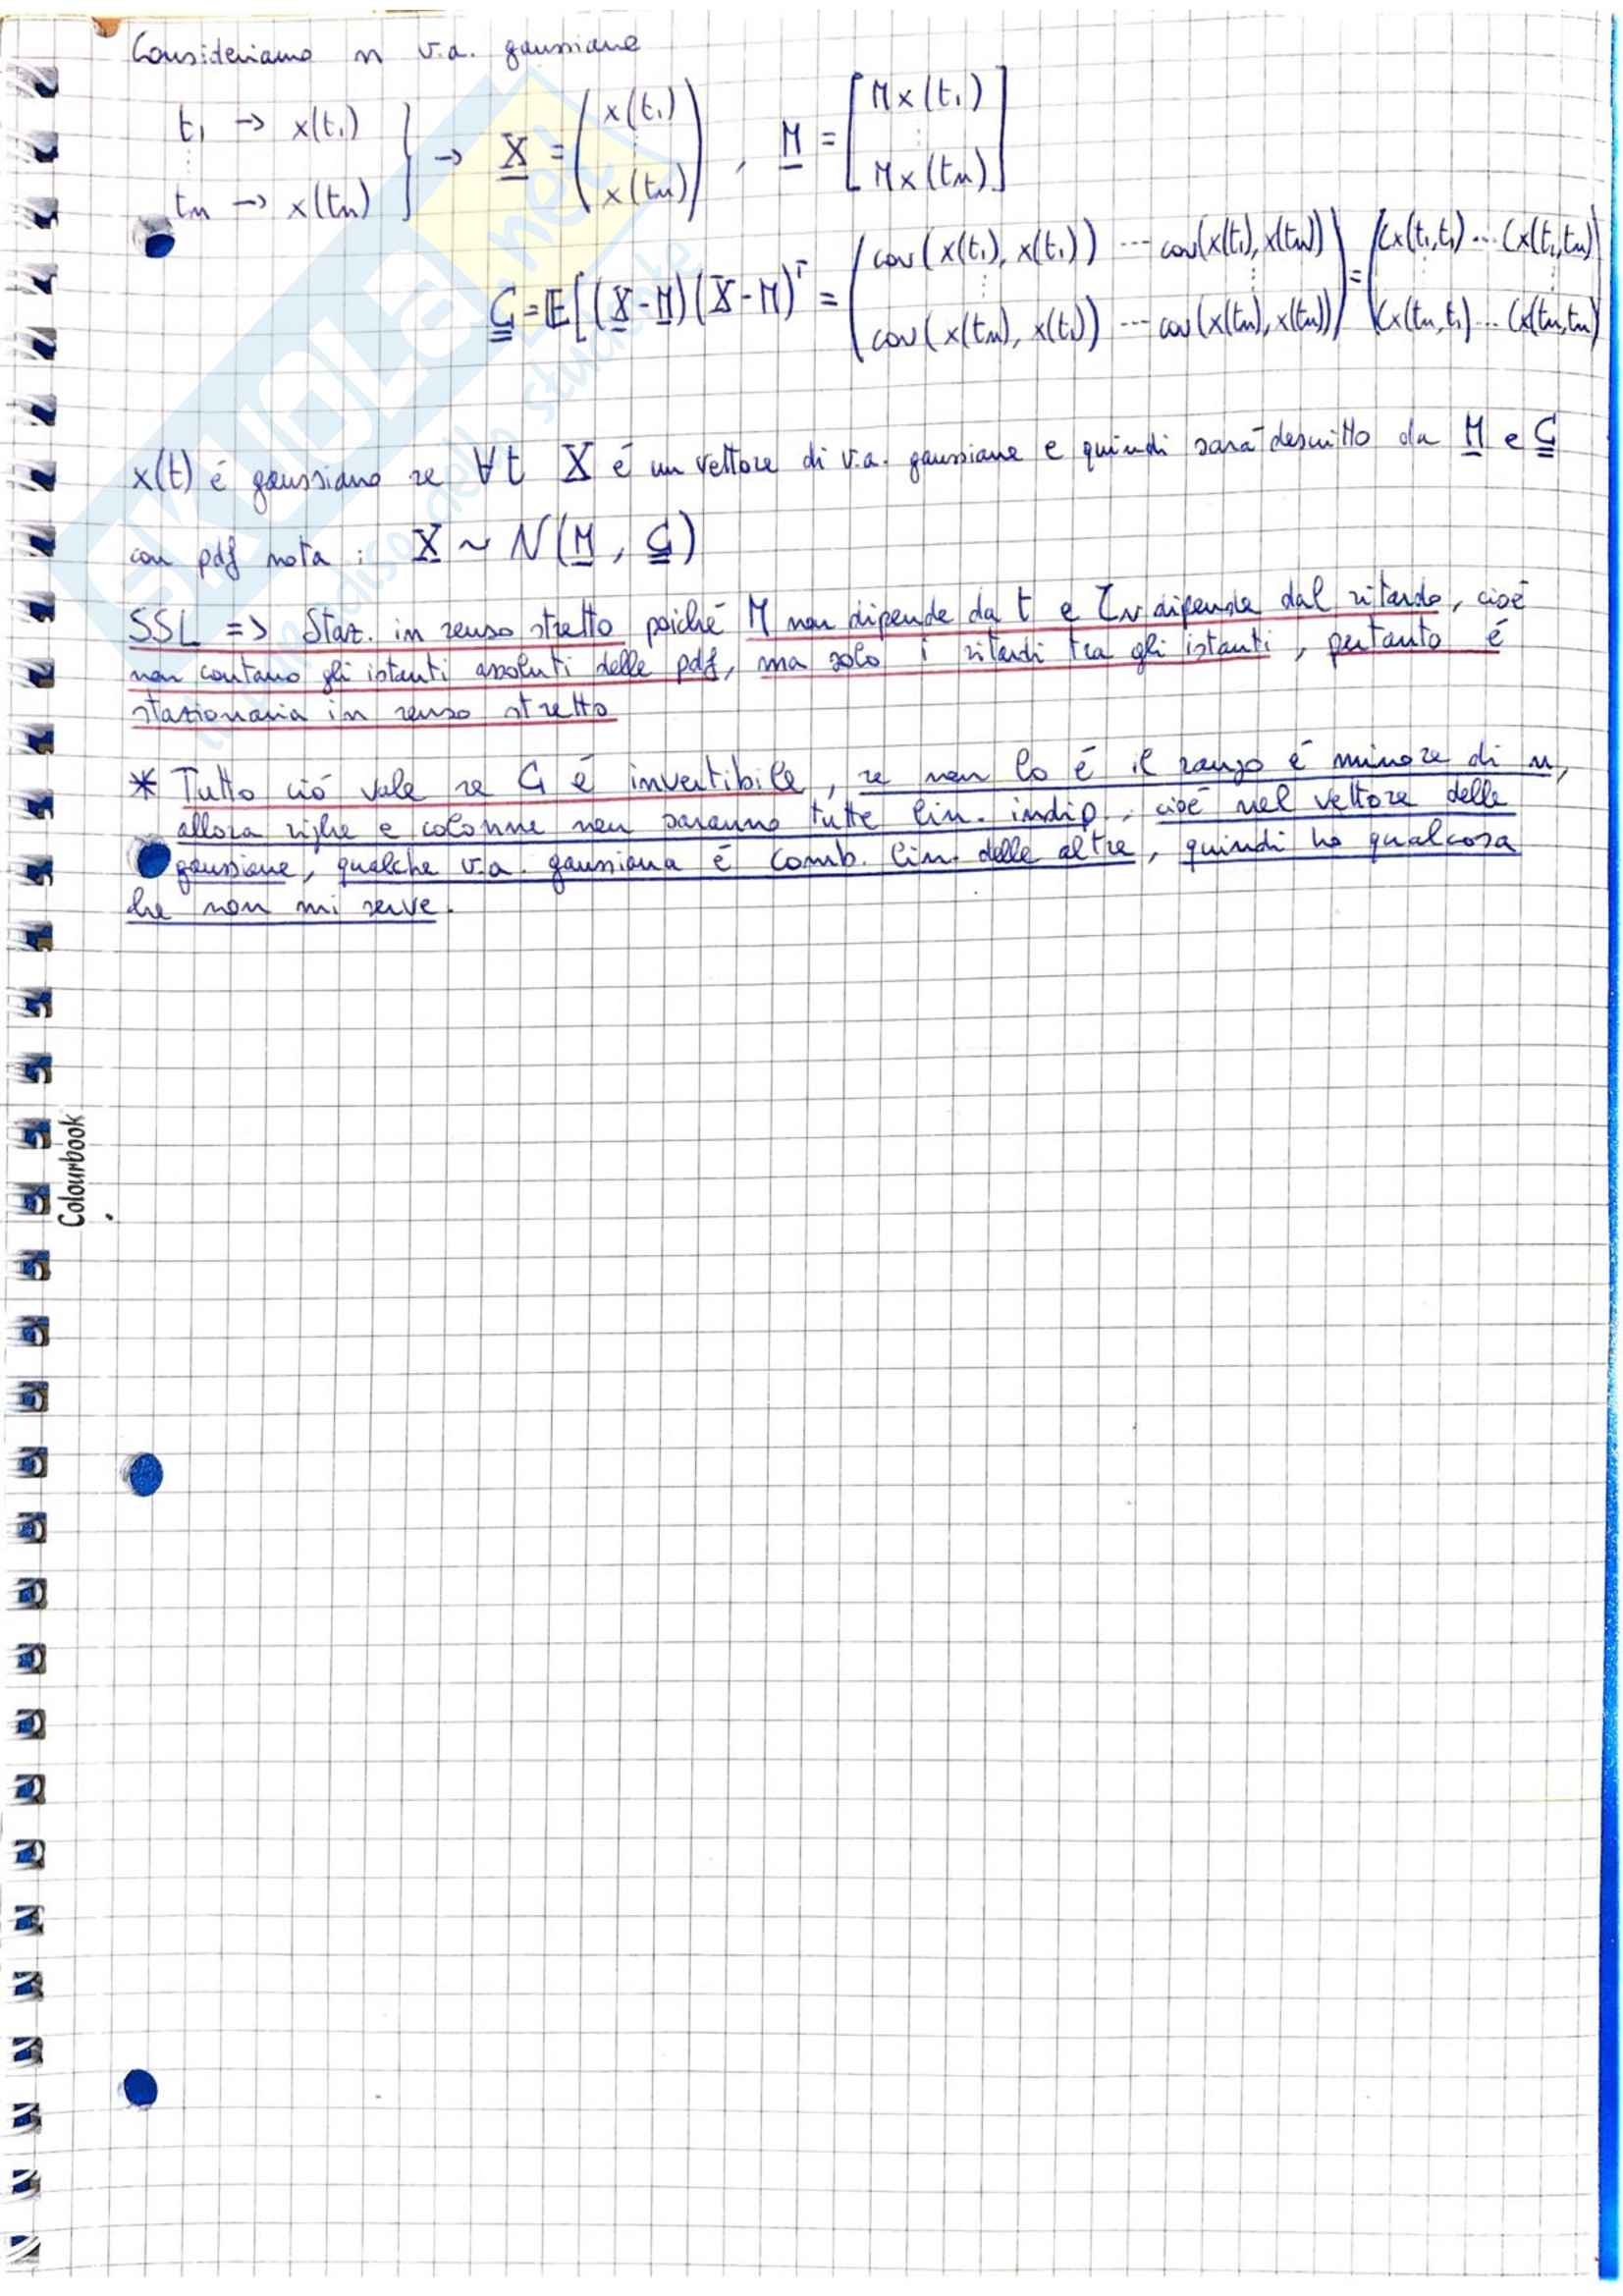 Consideriamo n v.a. gaussiane
t₁ → x(t₁)
⋮
tₙ → x(tₙ) } → X = ( x(t₁) ⋮ x(tₙ) ) , M = [ Mx(t₁) ⋮ Mx(tₙ) ]
C = E[(X-M)(X-M)ᵀ = ( cov(x(t₁), x(t₁)) ... cov(x(t₁), x(tₙ)) ⋮ cov(x(tₙ), x(t₁)) ... cov(x(tₙ), x(tₙ)) ) = ( Cx(t₁,t₁) ... Cx(t₁,tₙ) ⋮ Cx(tₙ,t₁) ... Cx(tₙ,tₙ) )
x(t) é gaussiano se ∀t X é un vettore di v.a. gaussiane e quindi sará descritto da M e C
con pdf nota : X ~ N(M, C)
SSL => Staz. in senso stretto poiché M non dipende da t e dipende dal ritardo, cioé
non contano gli istanti assoluti delle pdf, ma solo i ritardi tra gli istanti, pertanto é
stazionaria in senso stretto
* Tutto ció vale se C é invertibile, se non lo é il rango é minore di n,
allora righe e colonne non saranno tutte lin. indip., cioé nel vettore delle
gaussiane, qualche v.a. gaussiana é comb. lin. delle altre, quindi ho qualcosa
che non mi serve.
Colourbook
SKUOLA.net